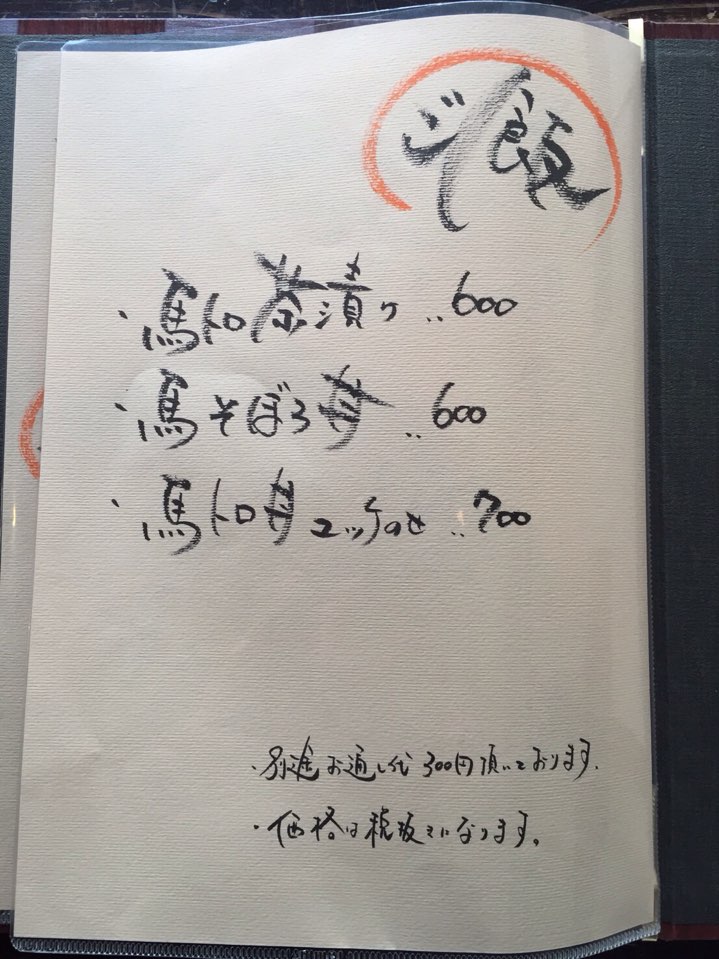 ご飯
・馬トロ茶漬け‥600
・馬そぼろ丼‥600
・馬トロ丼ユッケのせ‥700
・別途お通し代300円頂いております.
・価格は税抜きになります。